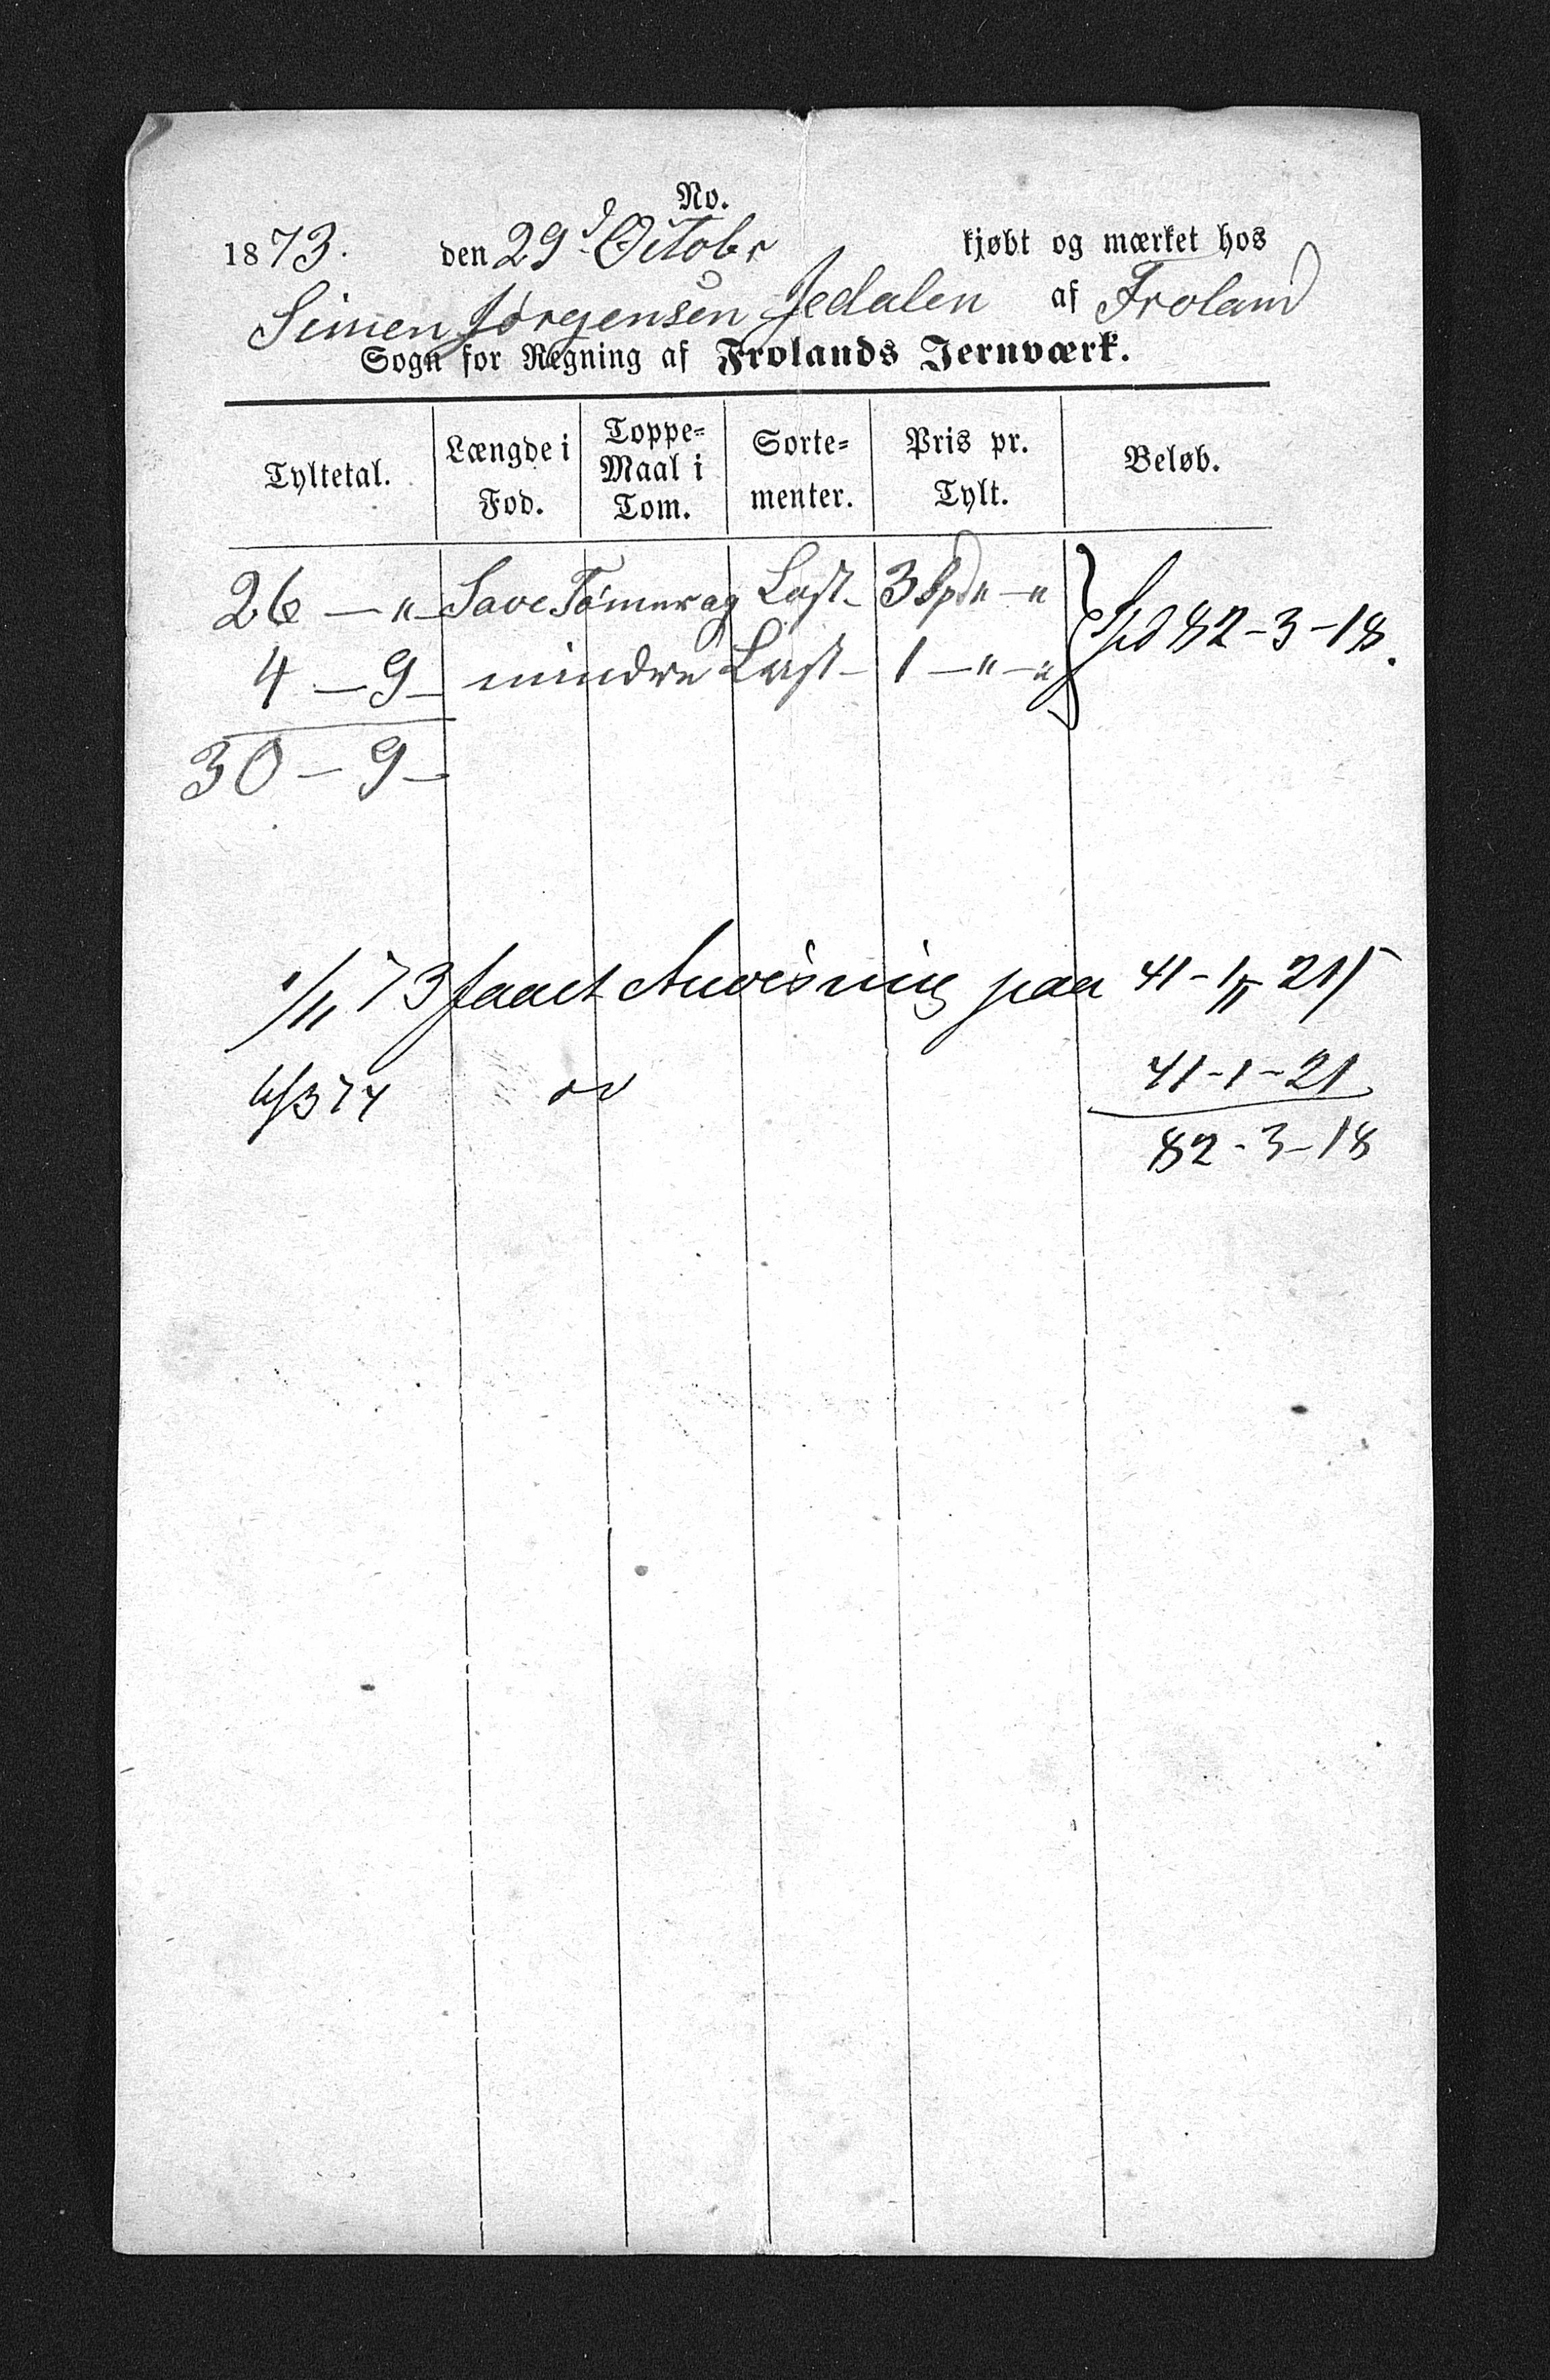 No.
1873. den 29d Octobr kjøbt og mærket hos
Simen Jørgensen Jedalen af Froland
Sogn for Regning af Frolands Jernværk.
Tyltetal. Længde i Fod. Toppe-Maal i Tom. Sorte-menter. Pris pr. Tylt. Beløb.
26 — " — Save Tømer og Last — 3 Spd " — "
4 — 9 — mindre Last — 1 — " — " Spd 82-3-18.
30 — 9 —
1/11 73 faaet Anvisning paa 41-1-21
6/3 74 do 41-1-21
82-3-18